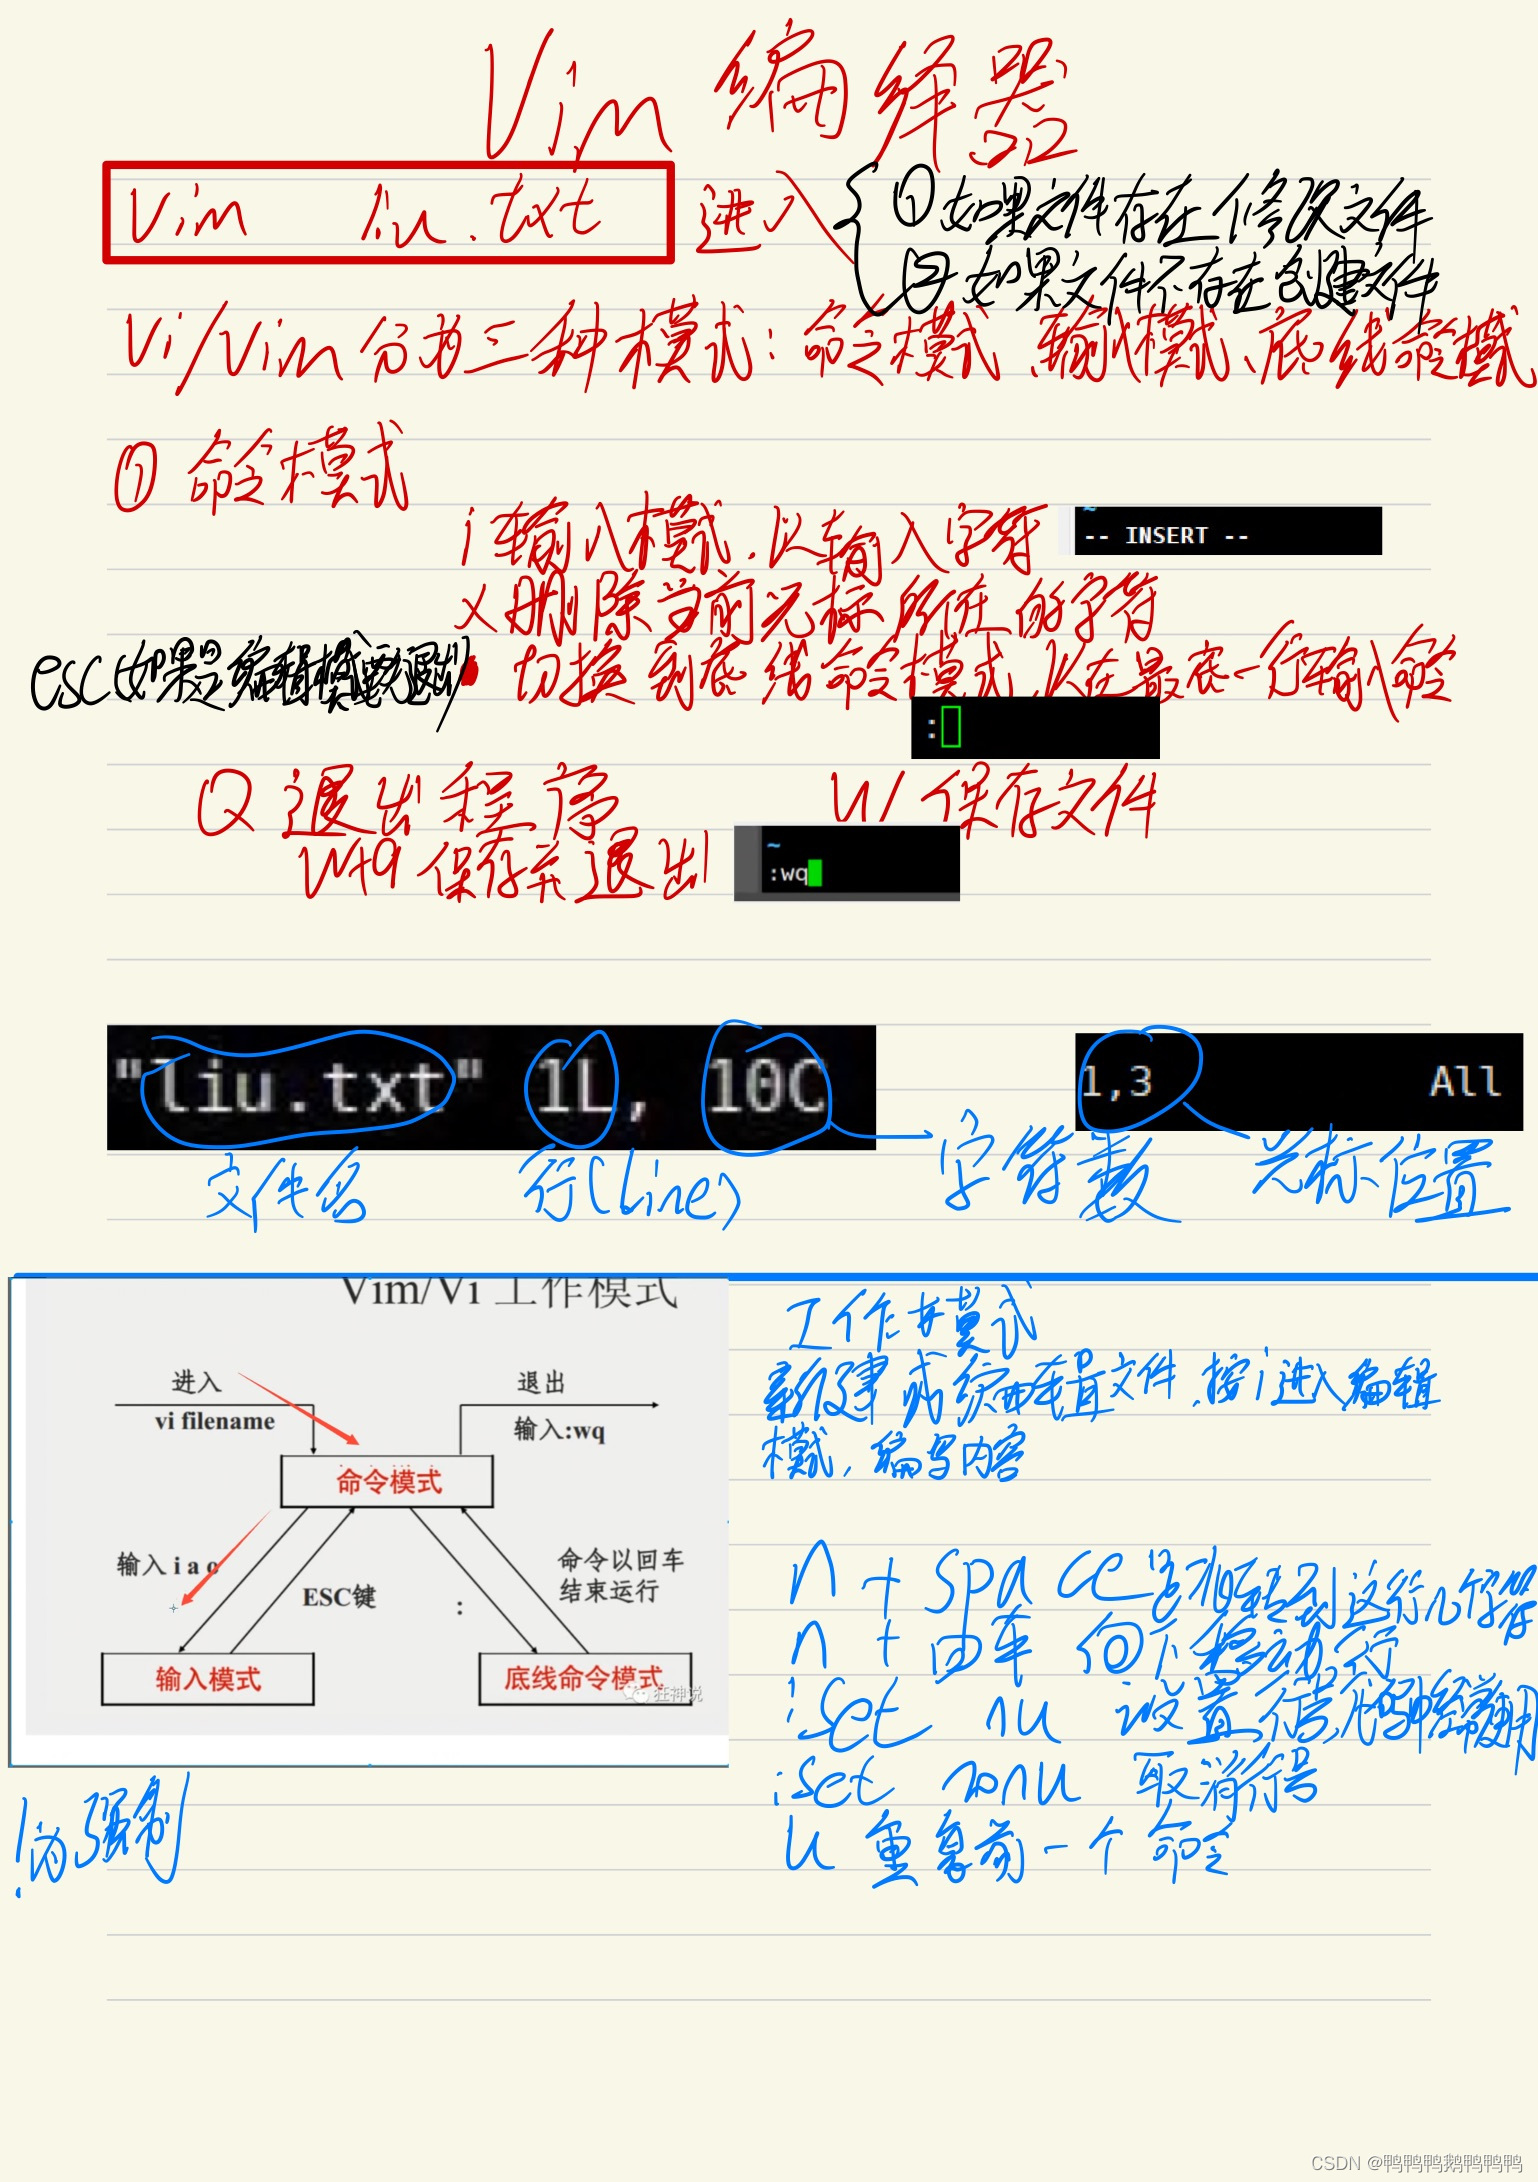 Vim 编译器
Vim liu.txt 进入
①如果文件存在 修改文件
②如果文件不存在 创建文件
Vi/Vim 分为三种模式：命令模式、输入模式、底线命令模式
① 命令模式
i 输入模式，以输入字符
-- INSERT --
x 删除当前光标所在的字符
esc(如果是编辑模式要退出)
: 切换到底线命令模式，以在最底一行输入命令
:
Q 退出程序 W 保存文件
W+q 保存并退出
~
:wq
"liu.txt" 1L, 10C
1,3 All
文件名 行(Line) 字符数 光标位置
Vim/Vi 工作模式
进入
vi filename
退出
输入:wq
命令模式
输入 i a o
ESC键
:
命令以回车
结束运行
输入模式
底线命令模式
狂神说
工作模式
新建或编辑文件，按i进入编辑
模式，编写内容
n + space 跳转到这行n个字符
n + 回车 向下移动n行
:set nu 设置行号，代码中经常使用
:set nonu 取消行号
u 重复前一个命令
!为强制
CSDN @鸭鸭鸭鹅鸭鸭鸭